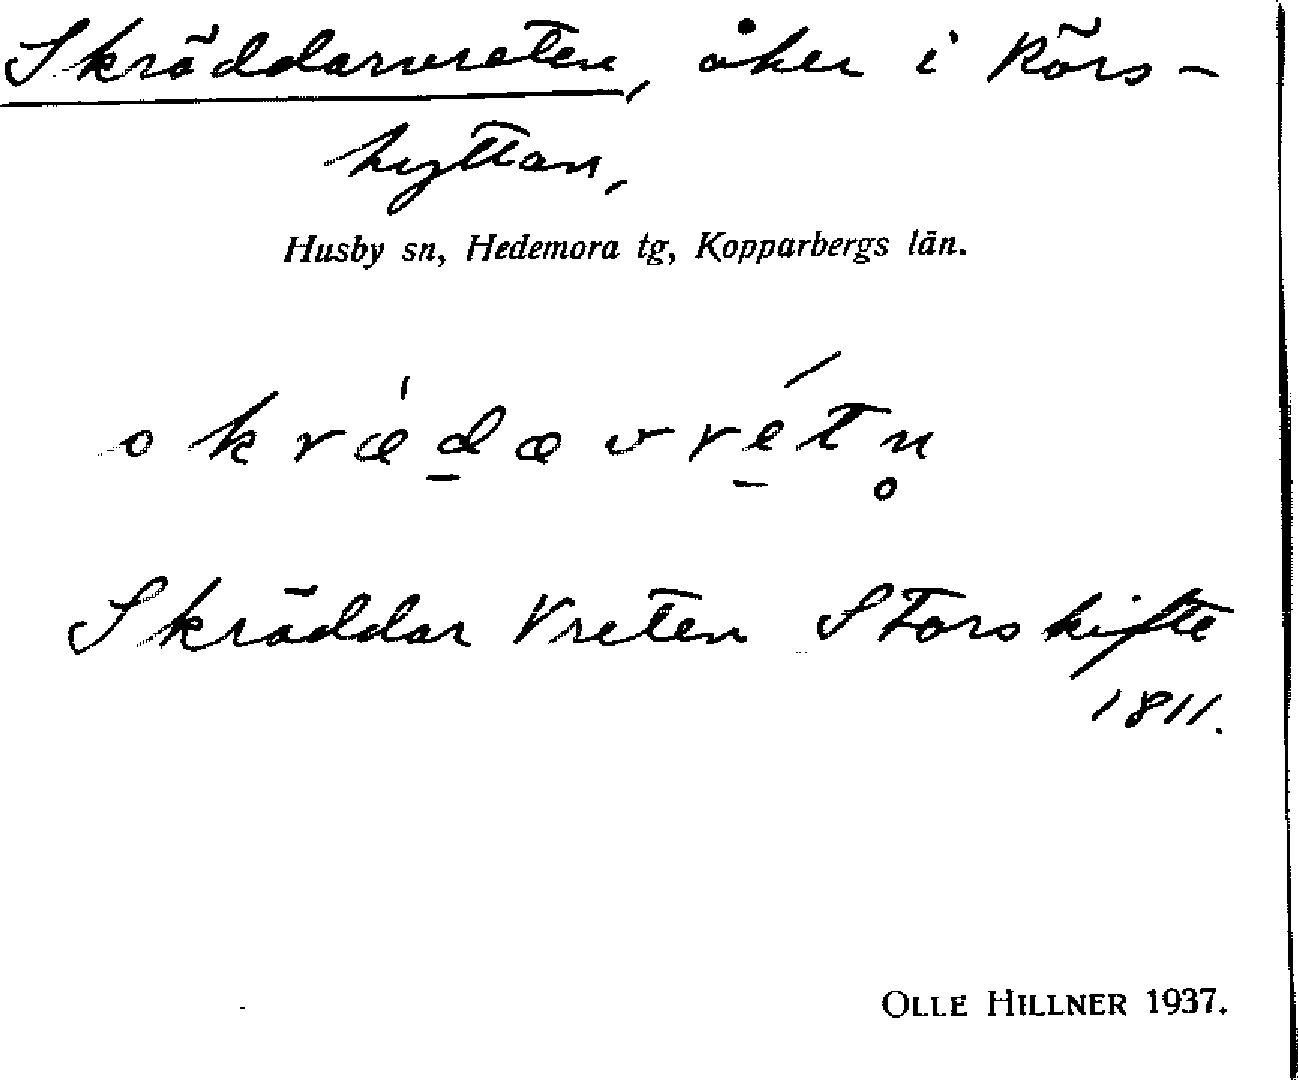 Skräddarvreten, åker i Rörs-
hyttan,
Husby sn, Hedemora tg, Kopparbergs län.
skræ̀d̲ævré̲tn̥
Skräddar Vreten Storskifte
1811.
OLLE HILLNER 1937.